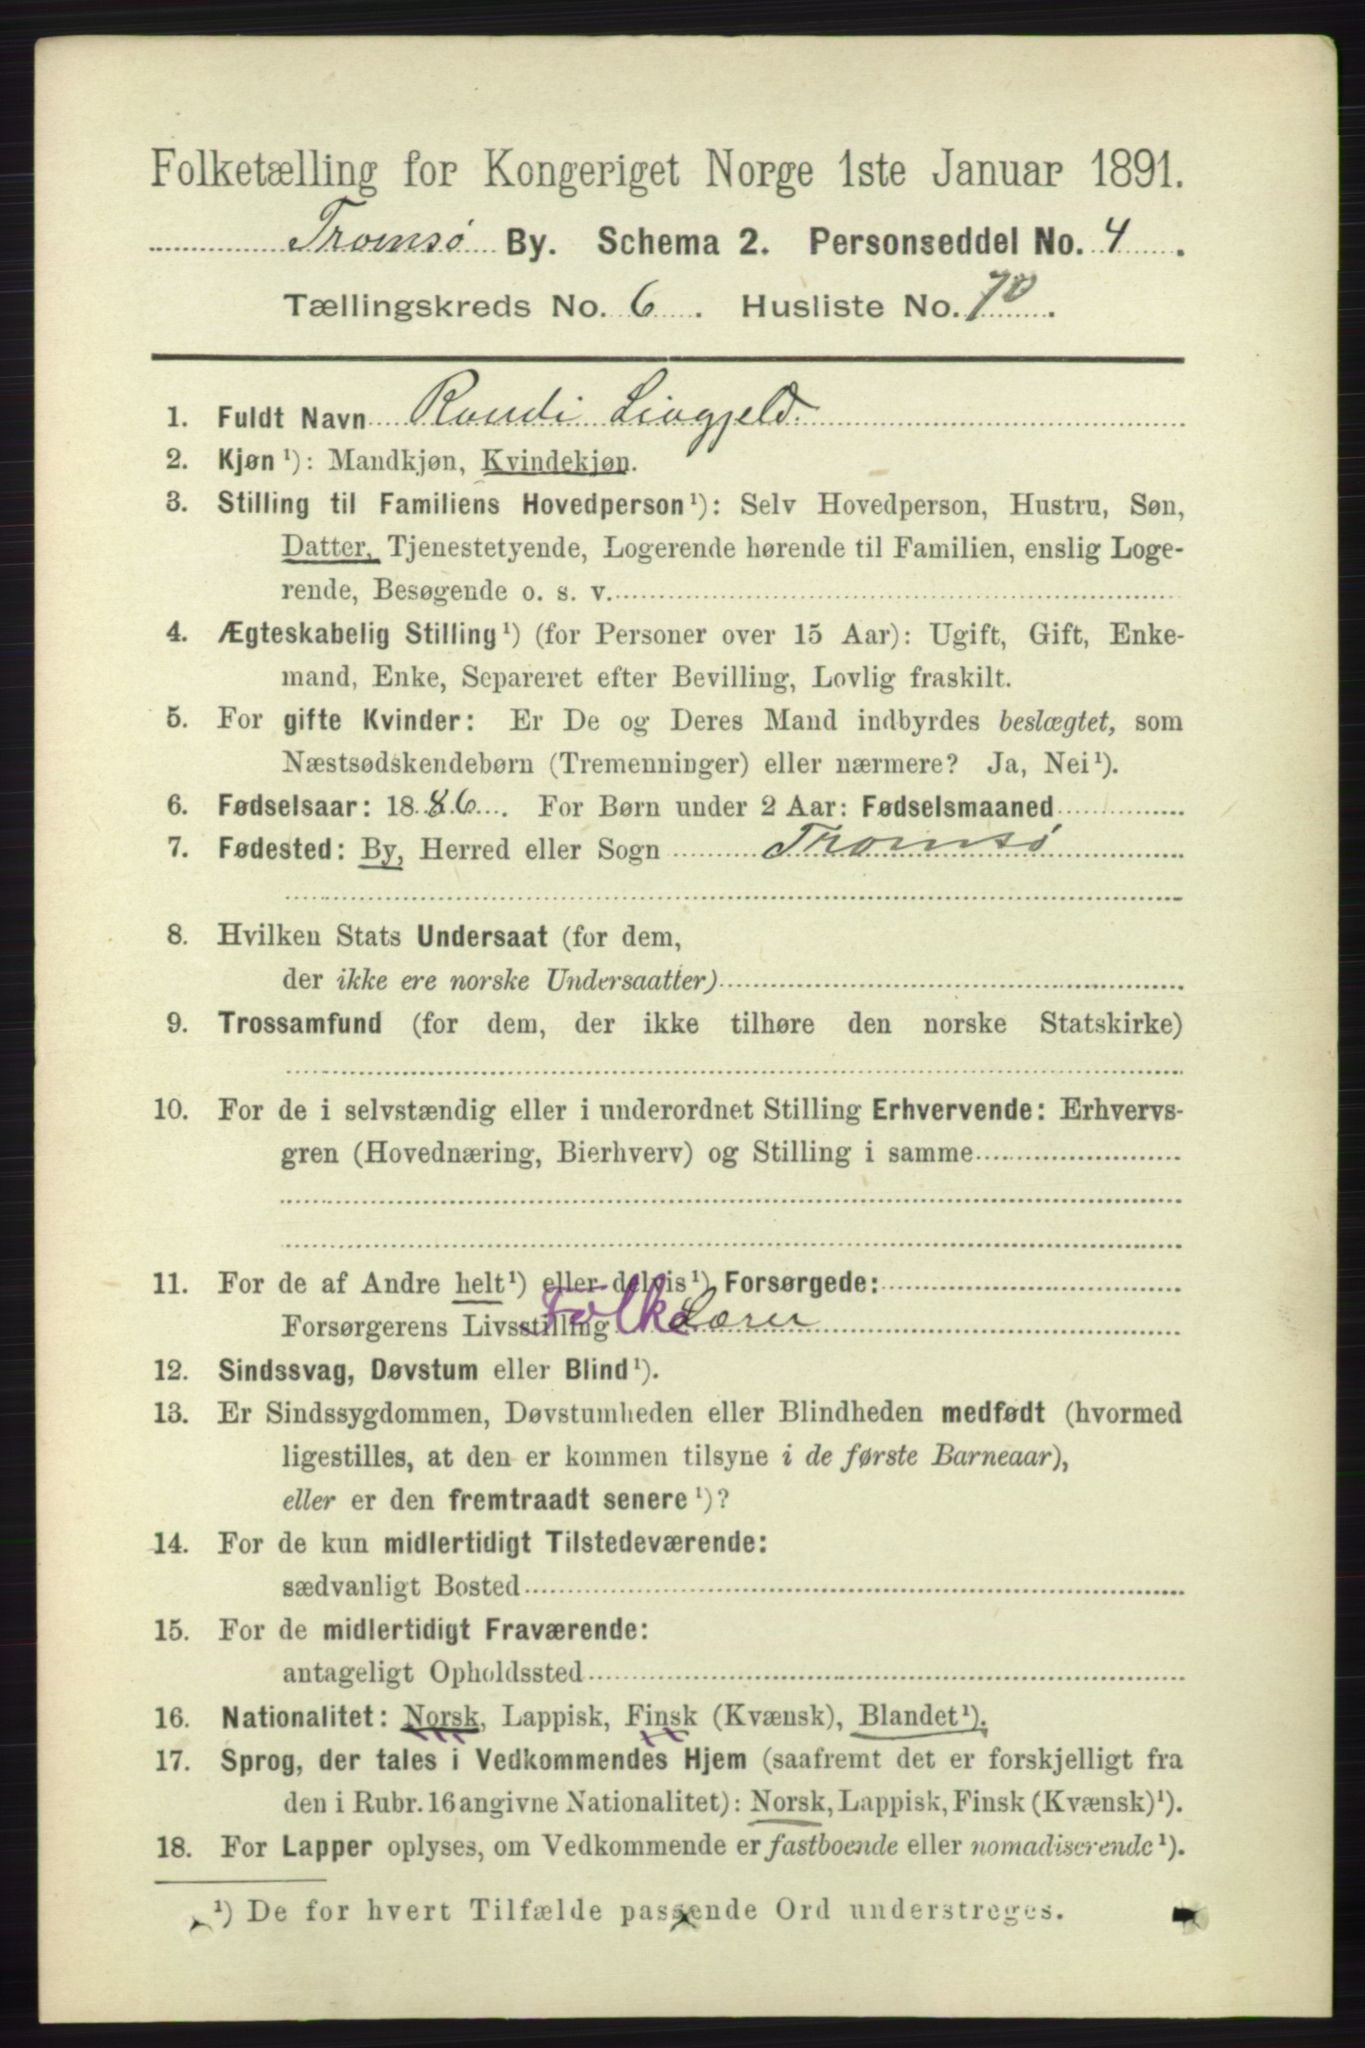 Folketælling for Kongeriget Norge 1ste Januar 1891.
Tromsø By. Schema 2. Personseddel No. 4.
Tællingskreds No. 6. Husliste No. 70.
1. Fuldt Navn Randi Livgjeld
2. Kjøn¹): Mandkjøn, Kvindekjøn.
3. Stilling til Familiens Hovedperson¹): Selv Hovedperson, Hustru, Søn,
Datter, Tjenestetyende, Logerende hørende til Familien, enslig Loge-
rende, Besøgende o. s. v.
4. Ægteskabelig Stilling¹) (for Personer over 15 Aar): Ugift, Gift, Enke-
mand, Enke, Separeret efter Bevilling, Lovlig fraskilt.
5. For gifte Kvinder: Er De og Deres Mand indbyrdes beslægtet, som
Næstsødskendebørn (Tremenninger) eller nærmere? Ja, Nei¹).
6. Fødselsaar: 1886. For Børn under 2 Aar: Fødselsmaaned
7. Fødested: By, Herred eller Sogn Tromsø
8. Hvilken Stats Undersaat (for dem,
der ikke ere norske Undersaatter)
9. Trossamfund (for dem, der ikke tilhøre den norske Statskirke)
10. For de i selvstændig eller i underordnet Stilling Erhvervende: Erhvervs-
gren (Hovednæring, Bierhverv) og Stilling i samme
11. For de af Andre helt¹) eller delvis¹) Forsørgede:
Forsørgerens Livsstilling Folke Lærer
12. Sindssvag, Døvstum eller Blind¹).
13. Er Sindssygdommen, Døvstumheden eller Blindheden medfødt (hvormed
ligestilles, at den er kommen tilsyne i de første Barneaar),
eller er den fremtraadt senere¹)?
14. For de kun midlertidigt Tilstedeværende:
sædvanligt Bosted
15. For de midlertidigt Fraværende:
antageligt Opholdssted
16. Nationalitet: Norsk, Lappisk, Finsk (Kvænsk), Blandet¹).
17. Sprog, der tales i Vedkommendes Hjem (saafremt det er forskjelligt fra
den i Rubr. 16 angivne Nationalitet): Norsk, Lappisk, Finsk (Kvænsk)¹).
18. For Lapper oplyses, om Vedkommende er fastboende eller nomadiserende¹).
¹) De for hvert Tilfælde passende Ord understreges.